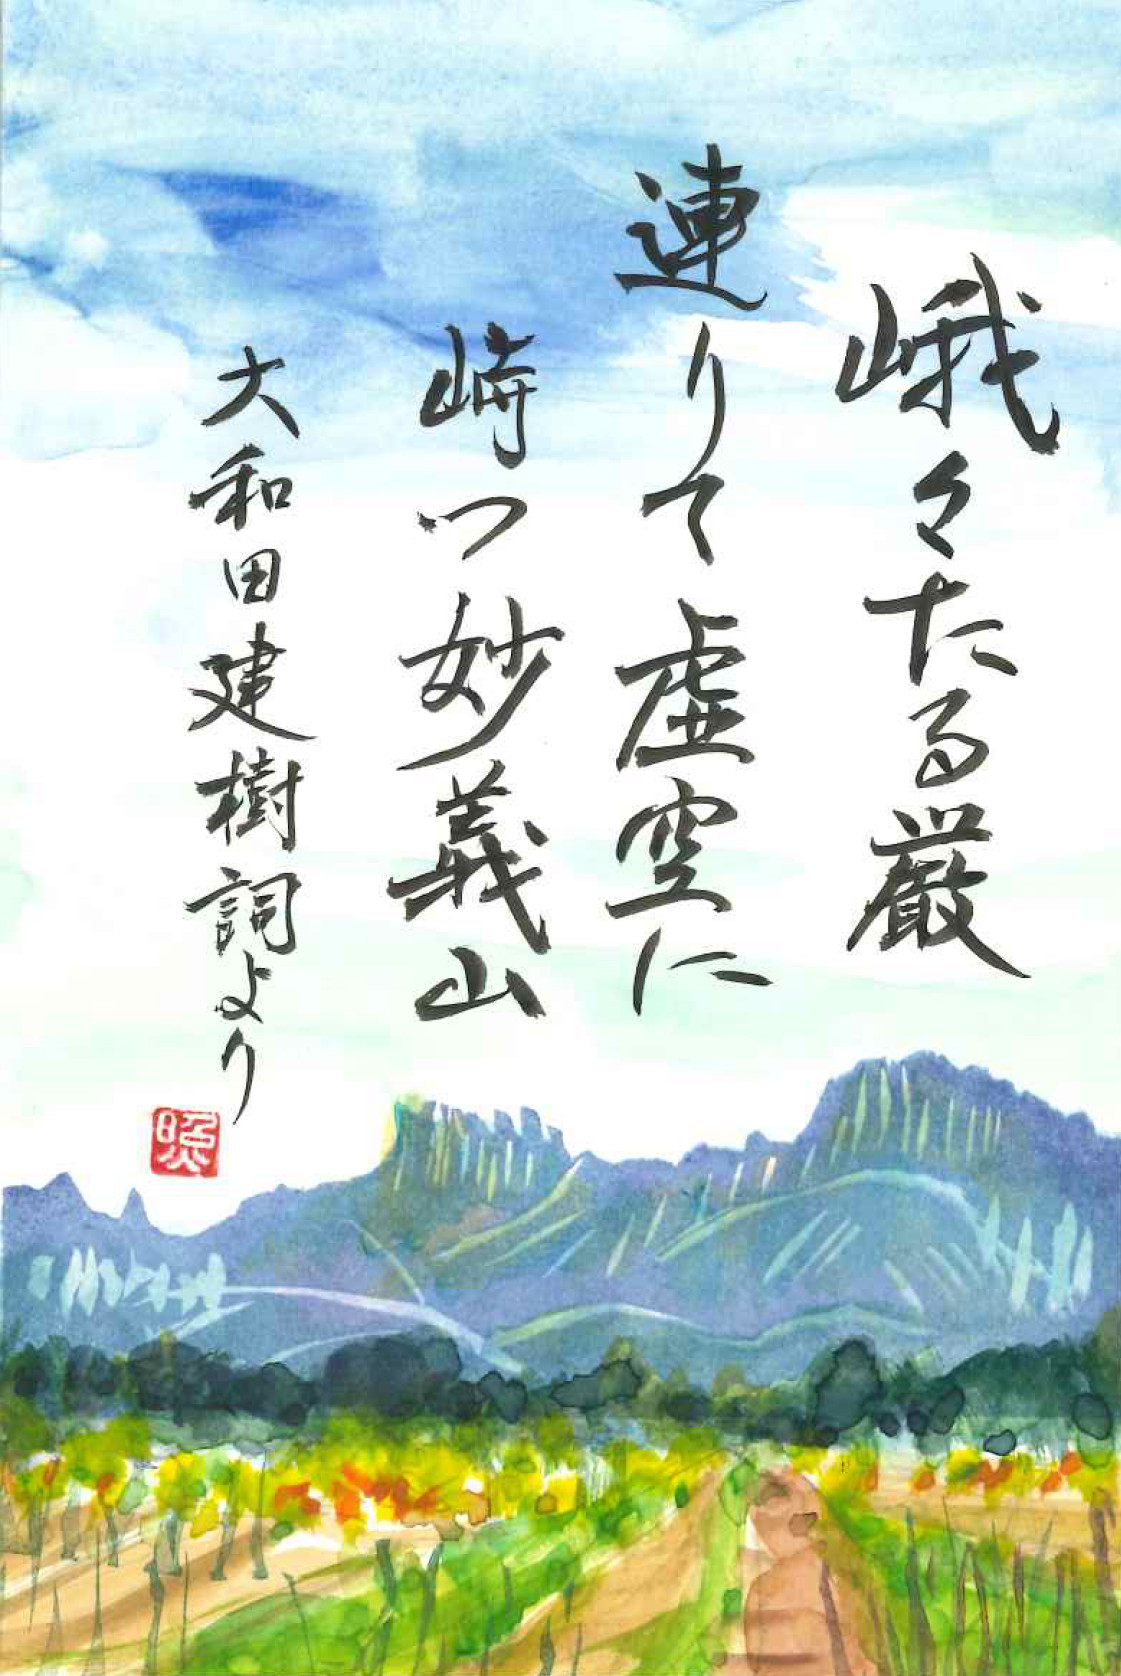 峨々たる巌
連りて虚空に
峙つ妙義山
大和田建樹詞より
照